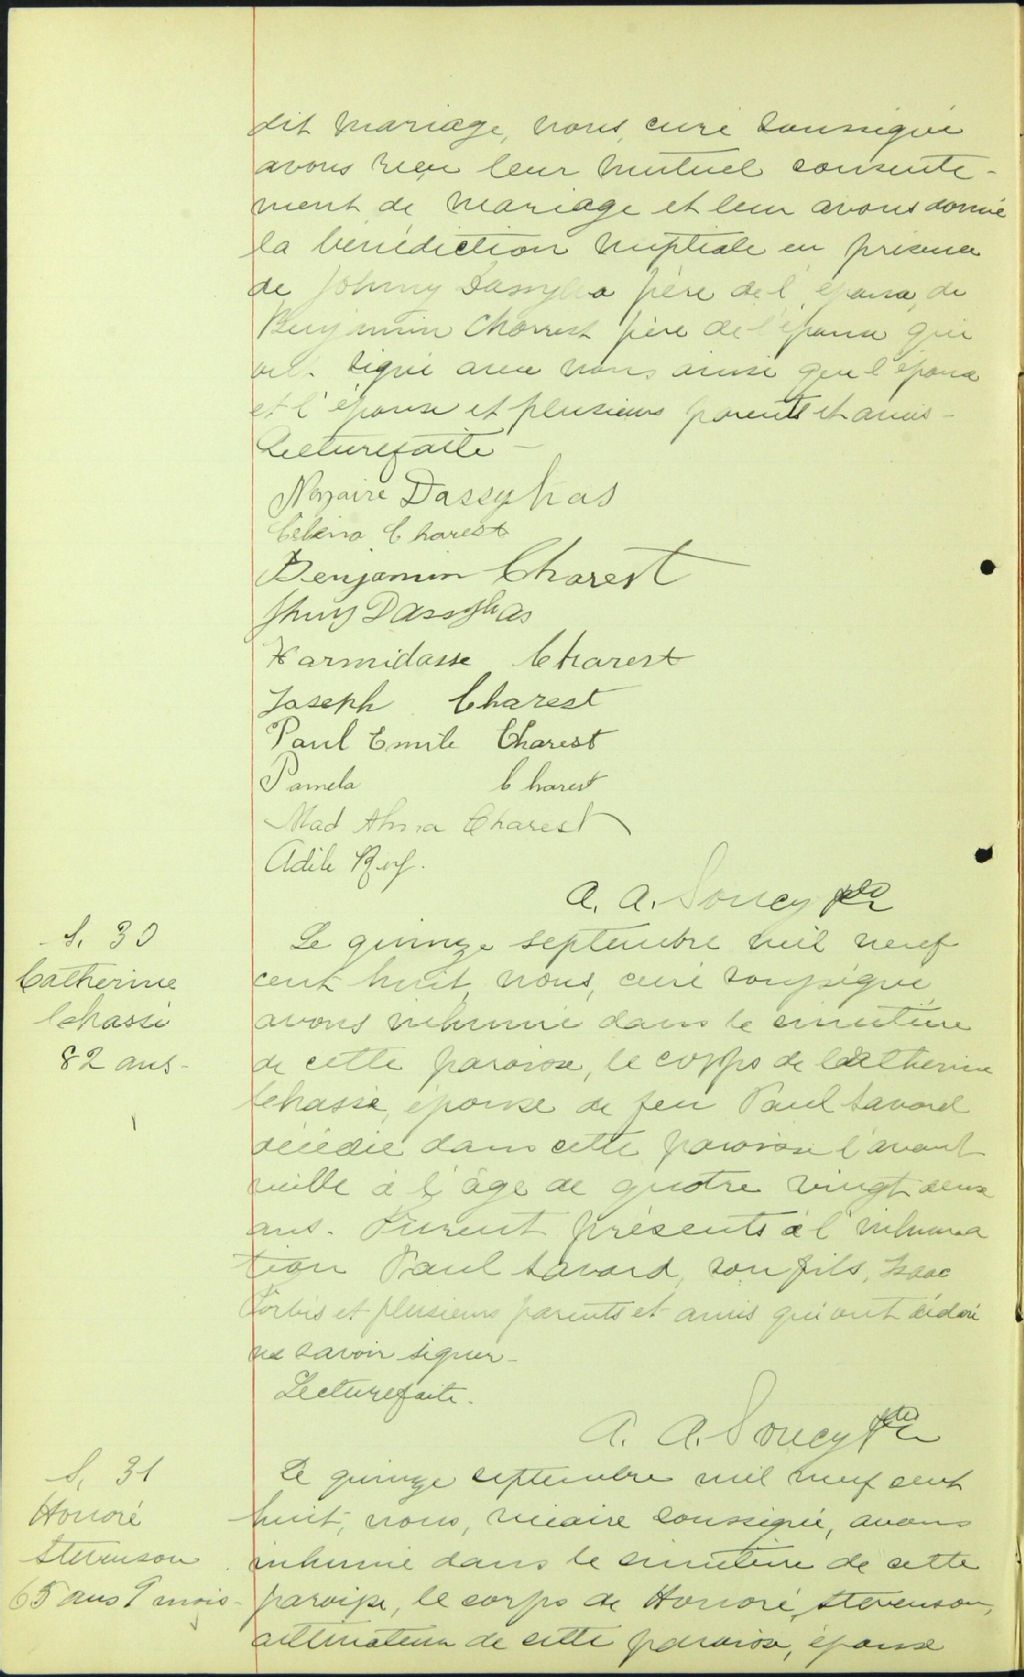 dit mariage, nous, curé soussigné
avons reçu leur mutuel consente-
ment de mariage et leur avons donné
la bénédiction nuptiale en présence
de Johnny Dassylva père de l'époux, de
Benjamin Charest père de l'épouse qui
ont signé avec nous ainsi que l'époux
et l'épouse et plusieurs parents et amis-
Lecture faite-
Nazaire Dassylvas
Célina Charest
Benjamin Charest
Jhny Dassylvas
Harmidasse Charest
Joseph Charest
Paul Emile Charest
Pamela Charest
Mad Alma Charest
Adile
A. A. Soucy ptre
S. 30
Catherine
Chassé
82 ans-
Le quinze septembre mil neuf
cent huit, nous, curé soussigné,
avons inhumé dans le cimetière
de cette paroisse, le corps de Catherine
Chassé, épouse de feu Paul Savard
décédée dans cette paroisse l'avant
veille à l'âge de quatre vingt deux
ans. Furent présents à l'inhuma
tion Paul Savard, son fils, Isaac
Forbis et plusieurs parents et amis qui ont déclaré
ne savoir signer-
Lecture faite.
A. A. Soucy Ptre
S. 31
Honoré
Stevenson
65 ans 9 mois-
Le quinze septembre mil neuf cent
huit, nous, vicaire soussigné, avons
inhumé dans le cimetière de cette
paroisse, le corps de Honoré Stevenson,
cultivateur de cette paroisse, époux